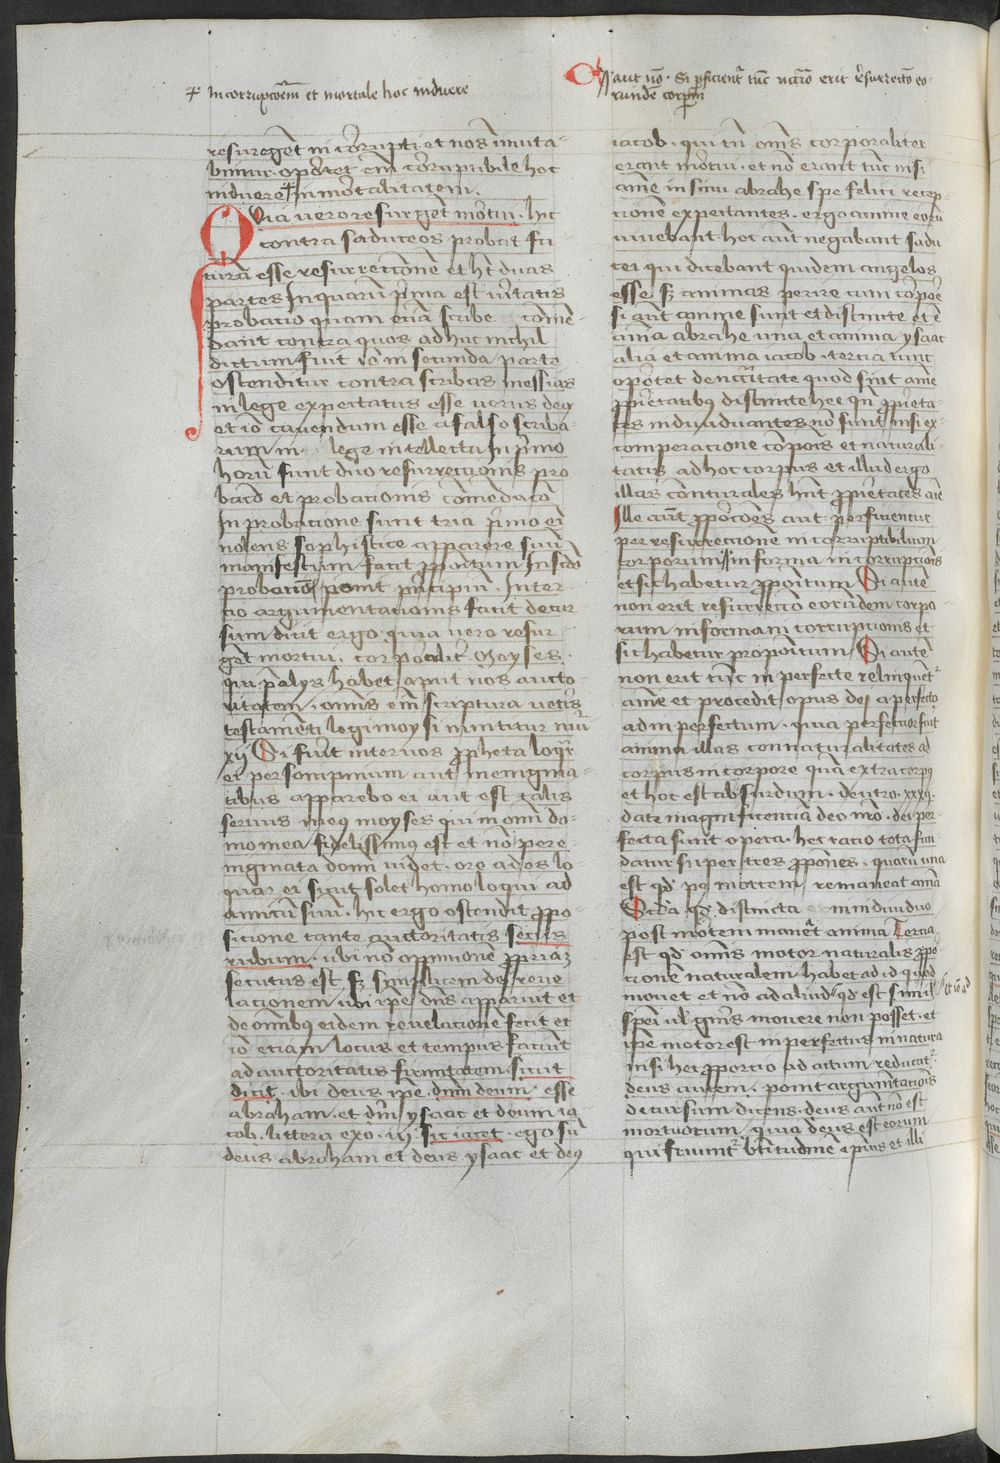 + Incorrupcōem et mortale hoc induere
resurēget īcōrrupti et nos īmuta-
bimur. oportet eīm cōrruptibile hoc
induere + inmōrtalitatem.
Quia vero resurgēt mōrtui. hic
contra saduceos probat fu
turā esse resurrectionē et hēt duas
partes In quarū prīma est v̄itatis
probatio quam etiā scribe cōmē-
dant contra quos adhuc nichil
dictum fuit iō in secunda parte
ostenditur contra scribas messias
in lege expectatus esse verus deus
et iō cavendum esse a falso scriba-
rum in lege intellectu In p̄imo
horū sunt duo resurrectionis pro
bacō et probationis cōmēdacō
In probatione sunt tria p̄imo eī
nolens sophistice apparere suū
manifestum facit p̄positum In sc̄do
probationis ponit p̄ncipiū. In ter-
cio argumentationis facit decur
sum dicit ergo. quia vero resur-
gāt mortui. Moyses.
qui p̄alys habet aput nos aucto-
ritatem. omīs eīm scriptura vetīs
testamēti legi moysi innititur nūi
xij Si fuerit inter vos p̄pheta loqr̄
ei per sompnium aut in enigma-
tibus apparebo ei aut est talis
servus meus moyses qui in omī do-
mo mea fidelissimus est et nō per e
nigmata domī videt. ore ad os lo-
quar ei sicut solet homo loqui ad
amicū suū. hic ergo ostendit p̄po-
sitione tante auctoritatis secus
rubum. ubi nō oppinionē p̄priam
secutus est sz simplicem dei reve
lacionem ubi ipē dn̄s apparuit et
de omībus eidem revelationē fecit et
iō etiam locus et tempus faciūt
ad auctoritatis firmitatem. sicut
dicit. ibi deus ipē dnm deum. esse
abraham. et dm̄ ysaac et deum ia
cob. littera exō. iij sic iacet. ego sū
deus abraham et deus ysaac et deus
aut nō. Si p̄ficientr̄ tūc nccr̄io erit r̄esurrectō eo-
rundē corpm̄
iacob. qui tn̄ om̄s corporaliter
erant mōrtui. et nō erant tūc nisi
aīme in sinu abrahe spe felici recep
tionē expectantes. ergo anime eorū
vivebant hoc aūt negabant sadu
cei qui dicebant quidem angelos
esse sz animas perire cum cōrpōre
si aūt anime sunt et distincte et ē
aīma abrahe una et anima ysaac
alia et anima iacob. tercia tunc
opōrtet de nccīitate quod sint aīme
p̄prietatibus distincte hee qn̄ p̄prieta-
tes individuantes nō sunt nisi ex
comperatione cōrpōis et naturali-
tatis ad hoc corpus et illud ergo
illas cōnturales hn̄t p̄prietates aīe
Ille aūt p̄porcōes aut perficientur
per resurrectionē incorruptibilium
corporum in forma incorruptionis
et sic habetur p̄positum Si autē
non erit resurrectō eorūdem corpo
rum in formam corruptionis et
sic habetur propositum Si autē
non erit tūc inperfecte relinquēt2
aīme et procedit opus dei a perfecto
ad inperfectum. quia perfectior fuit
anima illas connaturalitates ad
corpus in corpore quā extra corpus
et hoc est absurdum. deutro. xxxij.
date magnificentiā deo nr̄o. dei per-
fecta sunt opera. hec ratio tota fun
datur super tres p̄pōnes. quarū una
est qd̄ pos mortem remaneat aīma
Scd̄a qd̄ distincta individuo
post mōtem manēt anima Tercia
est qd̄ omīs motor naturalis p̄pō
tionē naturalem habet ad id quod
movet et nō ad aliud qd̄ est simil'
spēi ul' gn̄is movere non posset. et
ipē motor est inperfectus in natura
nisi hec p̄porcio ad actum reducat2.
deus autem. ponit argumtacionis
decursum dicens. deus aūt nō est
mortuorum quia deus est eorum
qui fruunt2 b̄titudinē ipsius et illi